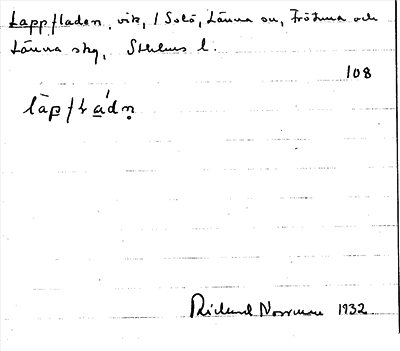 Lappfladen, vik, i Solö, Länna sn, Frötuna och
Länna skg, Sthlms l.
108
Rickard Norrman 1932